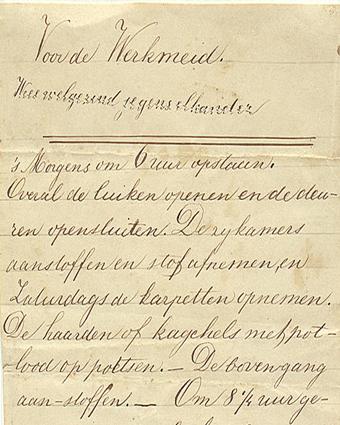 Voor de Werkmeid.
Wees welgezind jegens elkander
's Morgens om 6 uur opstaan.
Overal de luiken openen en de deu-
ren opensluiten. De zykamers
aanstoffen en stof afnemen, en
Zaturdags de karpetten opnemen.
De haarden of kagchels met pot-
lood op poetsen. — De bovengang
aan-stoffen. — Om 8 ¼ uur ge-